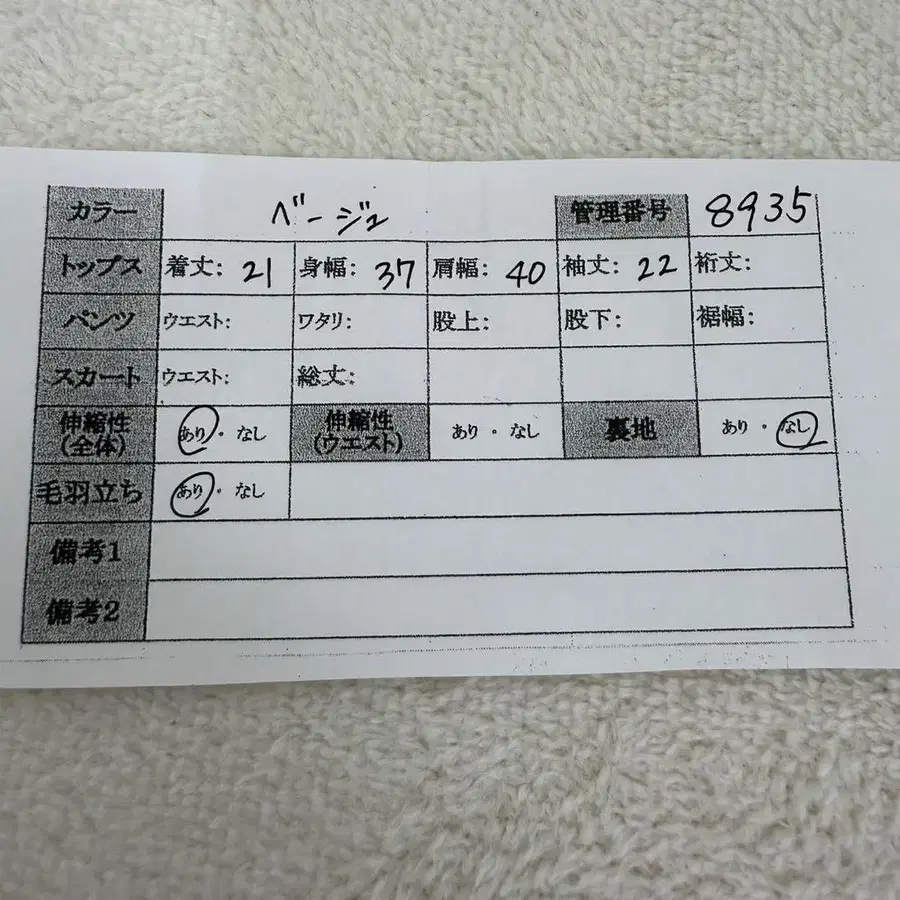 カラー ベージュ 管理番号 8935
トップス 着丈: 21 身幅: 37 肩幅: 40 袖丈: 22 裄丈:
パンツ ウエスト: ワタリ: 股上: 股下: 裾幅:
スカート ウエスト: 総丈:
伸縮性 (全体) あり・なし 伸縮性 (ウエスト) あり・なし 裏地 あり・なし
毛羽立ち あり・なし
備考1
備考2